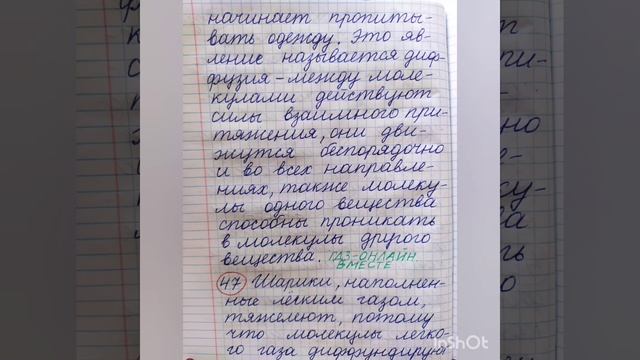 начинает пропиты-
вать одежду. Это яв-
ление называется диф-
фузия – между моле-
кулами действуют
силы взаимного при-
тяжения, они дви-
жутся беспорядочно
и во всех направле-
ниях, также молеку-
лы одного вещества
способны проникать
в молекулы другого
вещества. ГДЗ-ОНЛАЙН
ВМЕСТЕ
47 Шарики, наполнен-
ные лёгким газом,
тяжелеют, потому
что молекулы легко-
го газа диффундируют
InShOt